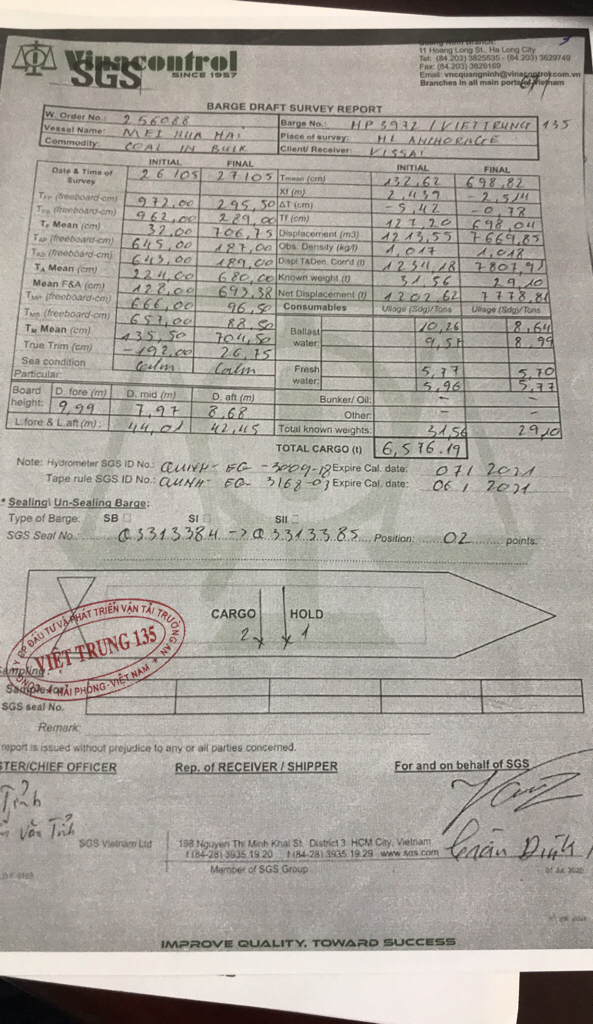 Vinacontrol
SGS SINCE 1957
11 Hoang Long St., Ha Long City
Tel: (84.203) 3825535 - (84.203) 3629740
Fax: (84.203) 3826169
Email: vncquangninh@vinacontrol.com.vn
Branches in all main ports of Vietnam
BARGE DRAFT SURVEY REPORT
W. Order No.: 256088 Barge No.: HP 3972 / VIETTRUNG 135
Vessel Name: MEI HUA HAI Place of survey: HL ANCHORAGE
Commodity: COAL IN BULK Client/Receiver: VISSAI
INITIAL FINAL INITIAL FINAL
Date & Time of Survey 26/05 27/05 Tmean (cm) 132,62 698,82
TFP (freeboard-cm) 972,00 295,50 Xf (m) 2,439 -2,514
TFS (freeboard-cm) 962,00 289,00 ΔT (cm) -5,42 -0,78
TF Mean (cm) 32,00 706,75 Tf (cm) 127,20 698,04
TAP (freeboard-cm) 645,00 187,00 Displacement (m3) 1213,55 7669,85
TAS (freeboard-cm) 643,00 189,00 Obs. Density (kg/l) 1,017 1,018
TA Mean (cm) 224,00 680,00 Displ T&Den. Corr'd (t) 1234,18 7807,91
Mean F&A (cm) 128,00 693,38 Known weight (t) 31,56 29,10
TMP (freeboard-cm) 666,00 96,50 Net Displacement (t) 1202,62 7778,81
TMS (freeboard-cm) 657,00 88,50 Consumables Ullage (Sdg)/Tons Ullage (Sdg)/Tons
TM Mean (cm) 135,50 704,50 Ballast water: 10,26 8,64
True Trim (cm) -192,00 26,75 9,51 8,99
Sea condition Calm Calm Fresh water: 5,77 5,70
Particular: 5,96 5,77
Board height: D. fore (m) D. mid (m) D. aft (m) Bunker/ Oil: - -
9,99 7,97 8,68 Other: - -
L.fore & L.aft (m): 44,01 42,45 Total known weights: 31,56 29,10
TOTAL CARGO (t) 6,576.19
Note: Hydrometer SGS ID No.: QUINH- EG -3009-18 Expire Cal. date: 07 / 2021
Tape rule SGS ID No.: QUNH- EG- 3168-03 Expire Cal. date: 06 / 2021
* Sealing\ Un-Sealing Barge:
Type of Barge: SB SI SII
SGS Seal No.: Q 3313384 -> Q 3313385 Position: 02 points.
CARGO HOLD
2 1
ĐẦU TƯ VÀ PHÁT TRIỂN VẬN TẢI TRƯỜNG AN
VIỆT TRUNG 135
HẢI PHÒNG-VIỆT NAM
Sampling
Sample for
SGS seal No.
Remark:
report is issued without prejudice to any or all parties concerned.
STER/CHIEF OFFICER Rep. of RECEIVER / SHIPPER For and on behalf of SGS
Tỉnh
Văn Tỉnh
Trần Đình
SGS Vietnam Ltd 198 Nguyen Thi Minh Khai St. District 3 HCM City, Vietnam
t (84-28) 3935 19 20 f (84-28) 3935 19 29 www.sgs.com
Member of SGS Group
01 Jul. 2020
IMPROVE QUALITY, TOWARD SUCCESS